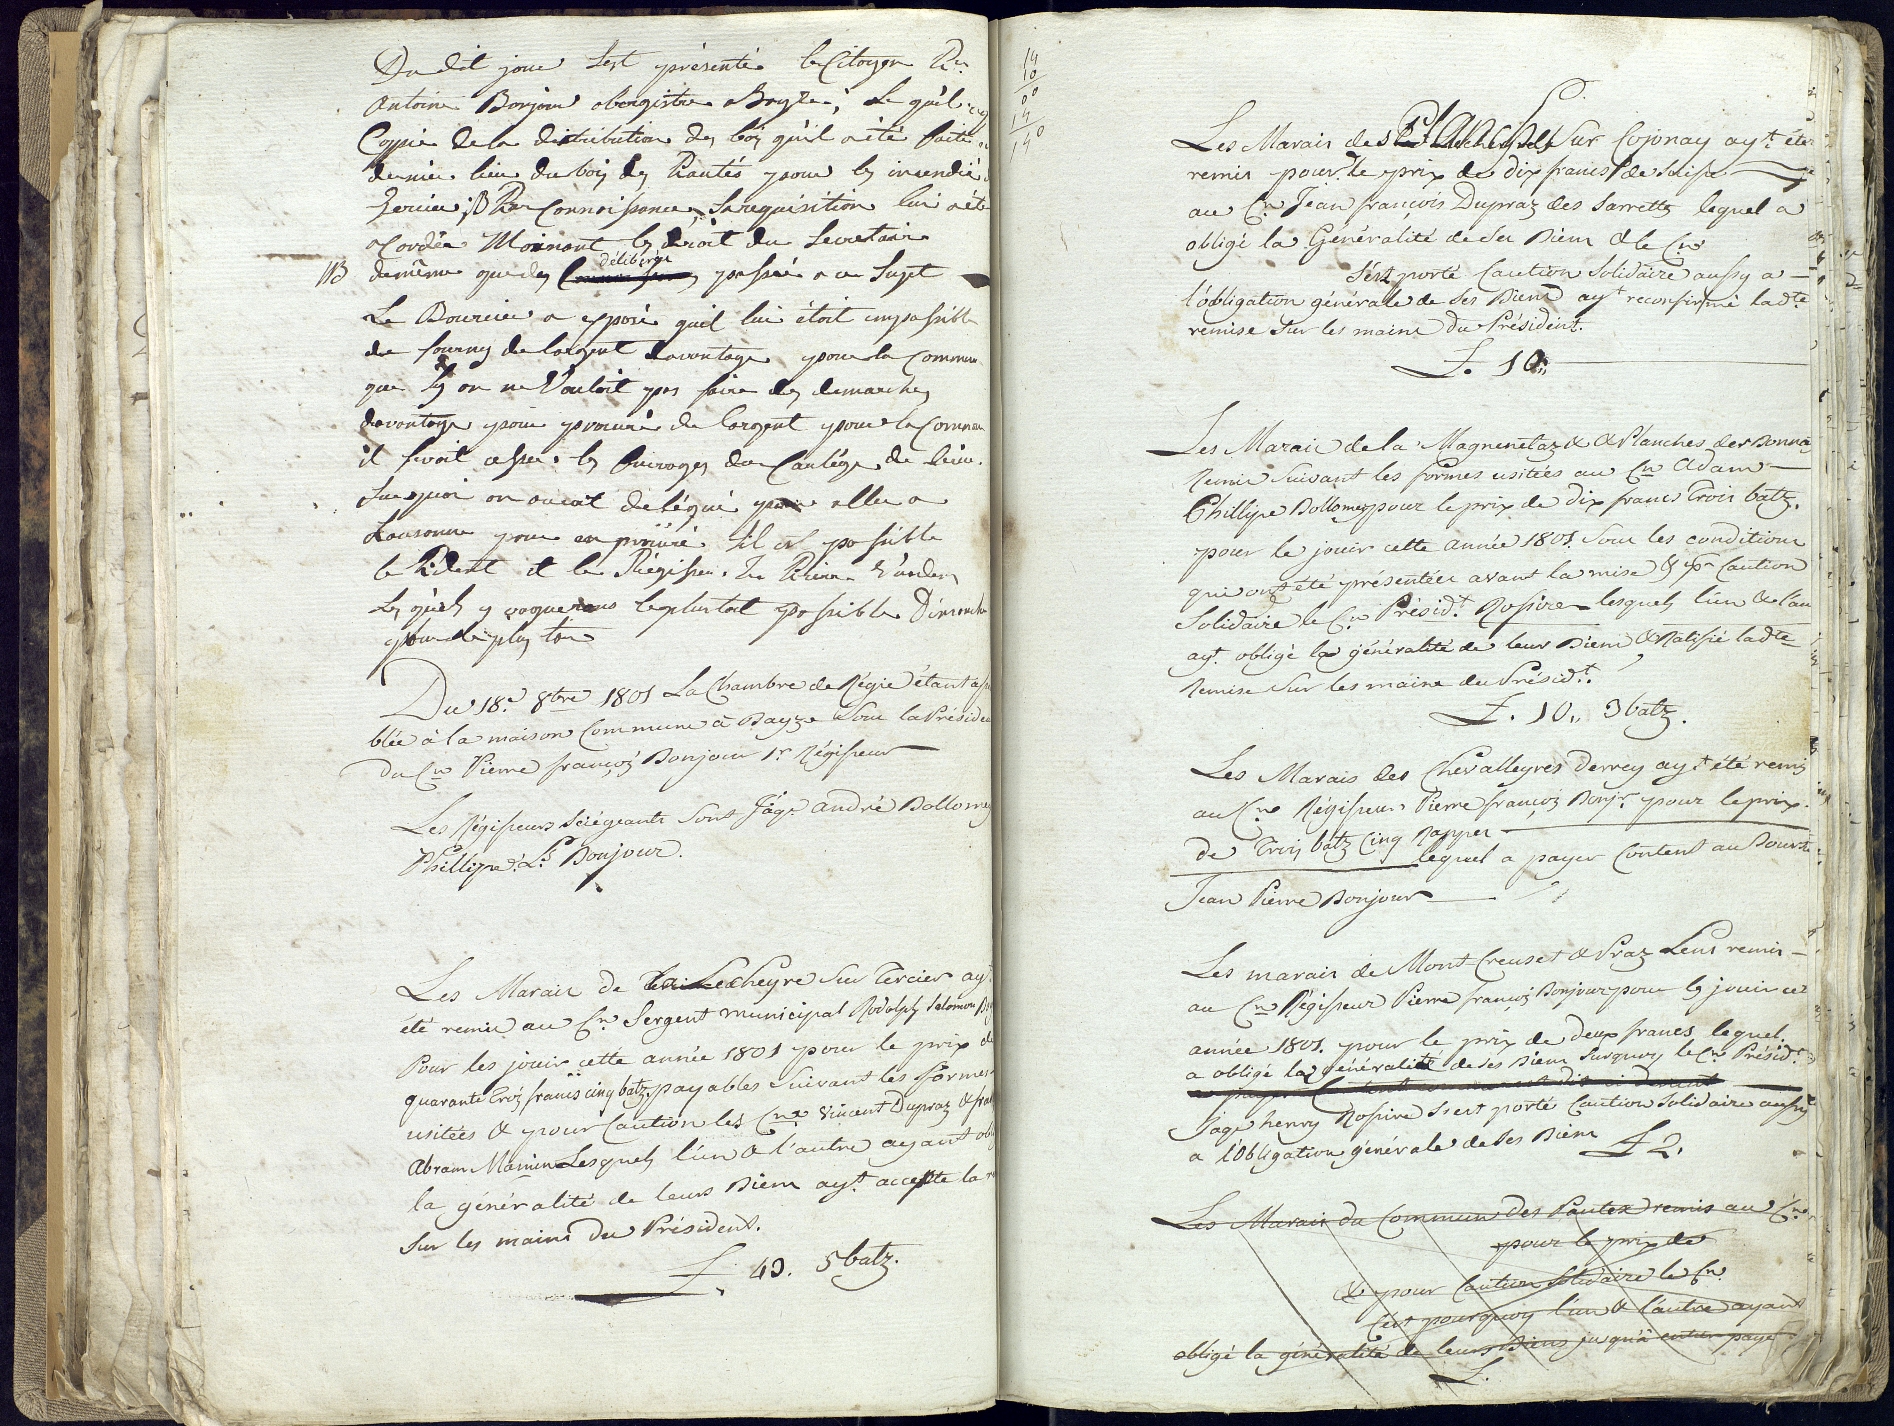 Du dit jour s'est présenté le Citoyen
Antoine Bonjour Le quel
Copie de la distribution des bois qu'il a été faite
dernier lieu du bois des Plantés pour les incendié
Connoissance Sa requisition lui a été
Moienant les droit du Secretaire
NB de même que des délibéré passée a ce Sujet
Le Boursier a exposé quil lui étoit impossible
de fourny de largent davantage pour la Commune
que sy on ne Vouloit pas faire des demarches
davantage pour procurer de largent pour la Commune
il feroit cesser les Ouvrages du Caulége de
Sur quoi on auroit delégué pour aller a
Lausanne pour en s'il est possible
le Pident et le Régisseur
Les quels y voquerons le plustot possible Dimanche
pour le plus tôt
Du 18.e 8bre 1801 La Chambre de Régie étant assem
blée à la maison Commune à Bayze Sous la Présiden
du Cn Pierre françois Bonjour 1r Régisseur
Les Régisseurs Siégeants Sont Jaqe andré Dollomey
Phillipe & Ls Bonjour.
Les Marais de Lecheyre Sur Tercier ayt
été remis au Cn Sergent municipal Rodolph Salomon
Pour les jouir cette année 1801 pour le prix de
quarante troi francs cinq batz payables Suivant les formes
usitées & pour Caution les Cns Vincent Dupraz &
Abram Monin Lesquels l'un & l'autre ayant
la généralité de leurs Biens ayt accepte la
Sur les mains du Président.
L. 43. 5 batz.
14
10
00
14
140
Les Marais des Planches Sur Cojonay ayt été
remis pour le prix de dix francs de Suisse
au Cn Jean françois Dupraz des Sarretts lequel a
obligé la Généralité de Ses Biens & le Cn
s'est porté Caution Solidaire aussy a
l'obligation générale de Ses Biens ayt reconfirmé ladte
remise Sur les mains du Président.
L. 10.
Les Marais de la Magnenetaz & Planches des
Remis Suivant les formes usitées au Cn Adam
Phillipe Dollomey pour le prix de dix francs Trois batz.
pour le jouir cette année 1801. Sous les conditions
qui ont été présentées avant la mise & pr Caution
Solidaire le Cn Présidt Rossire lesquels l'un & l'au
ayt. obligé la généralité de leurs Biens & Ratifié ladte
Remise Sur les mains du Présidt.
L. 10,, 3 batz.
Les Marais des Chevalleyres derrey ayt été remis
au Cn Régisseur Pierre françois Bonjr pour le prix
de Trois batz Cinq Rappes
lequel a payer Content au Boursr
Jean Pierre Bonjour
Les marais de Mont Creuset & Praz Leur remis
au Cn Régisseur Pierre françois Bonjour pour les jouir cet
année 1801. pour le prix de deux francs lequel
a obligé la généralité de Ses Biens Surquoy le Cn Présidt
Jaqe henry Rossire s'est porté Caution Solidaire aussy
a l'Obligation générale de Ses Biens L 2.
Les Marais du Commun des Pautex remis au Cn
pour le prix de
& pour Caution Solidaire le Cn
C'est pourquoy l'un & l'autre ayant
obligé la généralité de leurs Biens jusqu'à entier paye
L.